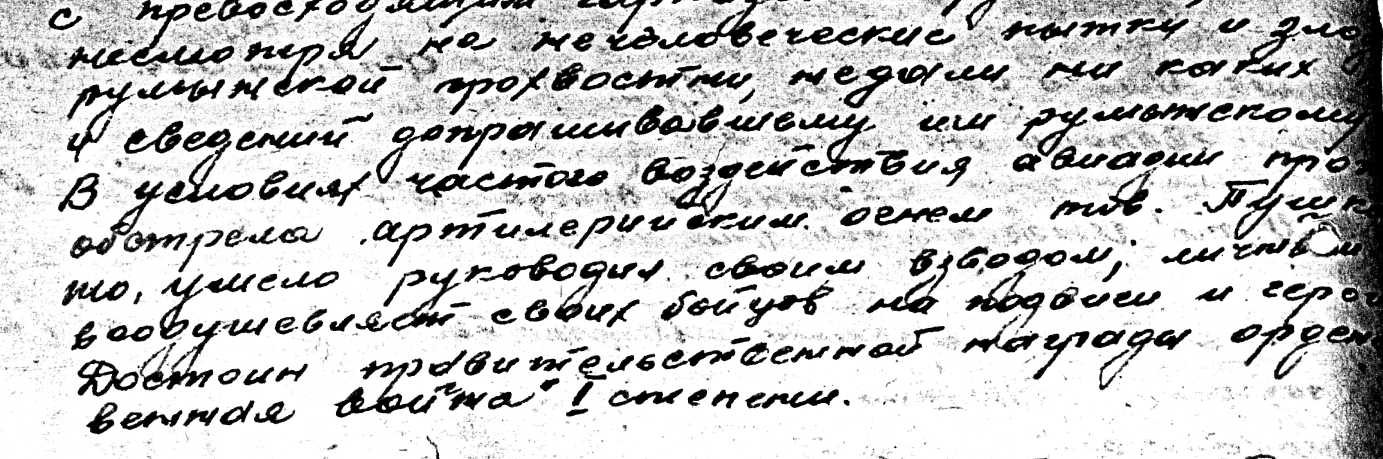 с превосходящим
несмотря на нечеловеческие пытки и
румынской прохвостни, недали ни каких
и сведений допрашивавшему им румынскому
В условиях частого воздействия авиации
обстрела артилерийским огнем тов.
то, умело руководил своим взводом, личным
воодушевляет своих бойцов на подвиги и
Достоин правительственной награды
венная война" I степени.